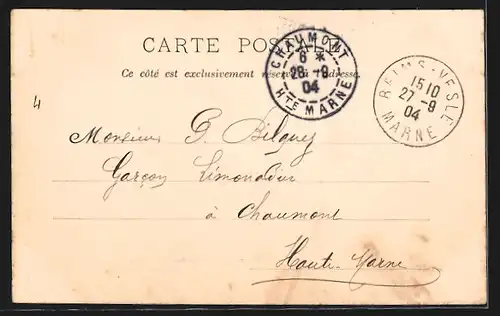 CARTE POSTALE
Ce côté est exclusivement réservé à l'adresse.
CHAUMONT
6 *
28 -9
04
HTE MARNE
REIMS-VESLE
15 10
27 -9
04
MARNE
4
Monsieur G. Bilguez
Garçon Limonadier
à Chaumont
Haute-Marne